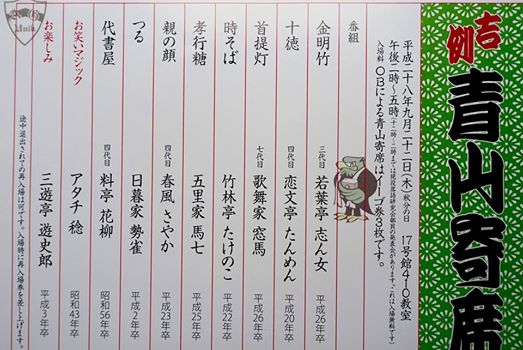 吉例
青山寄席
平成二十八年九月二十二日(木)秋分の日 17号館410教室
午後二時〜五時
入場料 OBによる青山寄席はイーゴ券3枚です。
番組
金明竹 三代目 若葉亭 志ん女 平成26年卒
十徳 四代目 恋文亭 たんめん 平成24年卒
首提灯 七代目 歌舞家 窓馬 平成26年卒
時そば 竹林亭 たけのこ 平成22年卒
孝行糖 五里家 馬七 平成25年卒
親の顔 四代目 春風 さやか 平成23年卒
つる 日暮家 勢雀 平成2年卒
代書屋 四代目 料亭 花柳 昭和56年卒
お笑いマジック アタチ 稔 昭和43年卒
お楽しみ 三遊亭 遊史郎 平成3年卒
途中退出されての再入場は可です。入場時に再入場券を差し上げます。